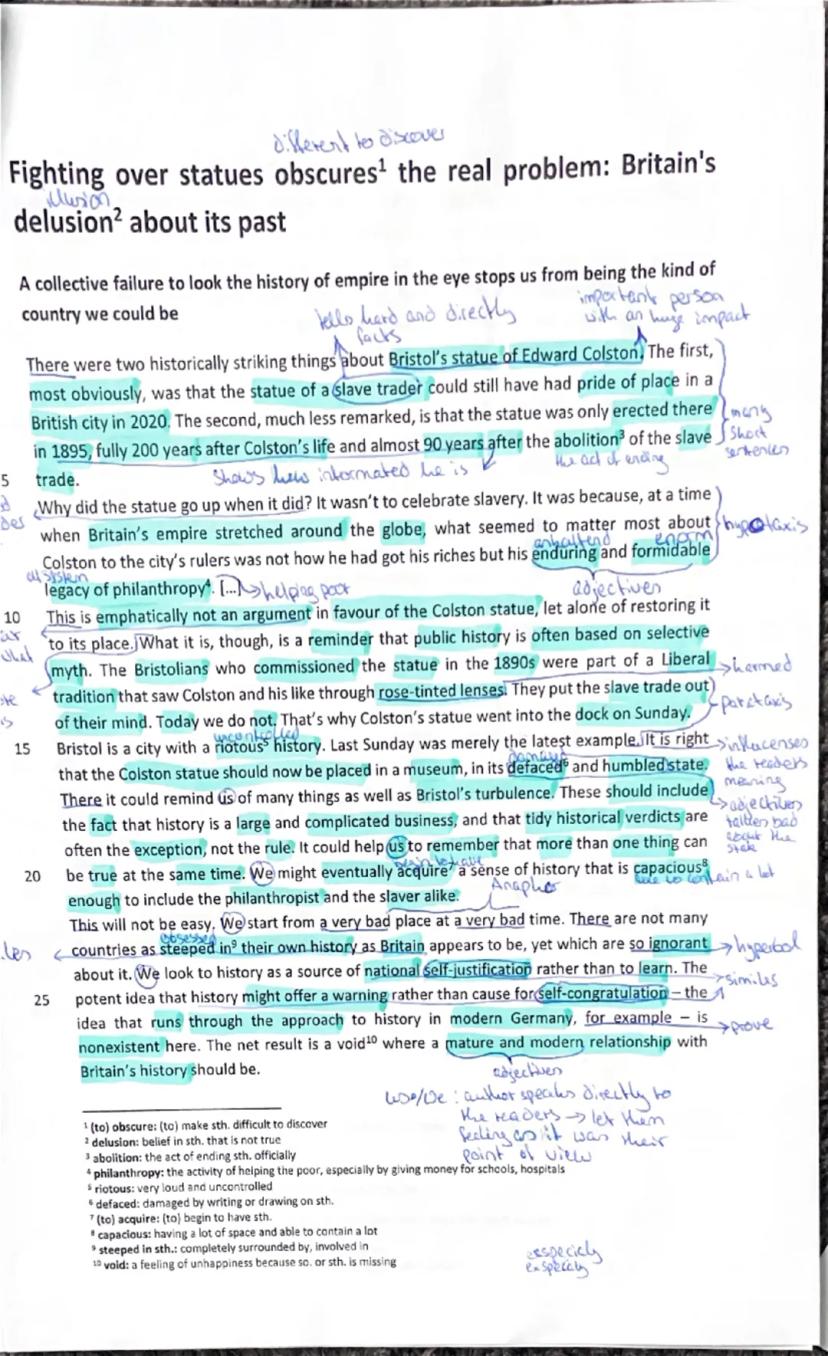 different to discover
Fighting over statues obscures¹ the real problem: Britain's
illusion
delusion² about its past
A collective failure to look the history of empire in the eye stops us from being the kind of
country we could be
important person
with an huge impact
tells hard and directly
facts
There were two historically striking things about Bristol's statue of Edward Colston. The first,
most obviously, was that the statue of a slave trader could still have had pride of place in a
British city in 2020. The second, much less remarked, is that the statue was only erected there
many
short
sentences
in 1895, fully 200 years after Colston's life and almost 90 years after the abolition³ of the slave
5 trade.
shows how informated he is
the act of ending
Why did the statue go up when it did? It wasn't to celebrate slavery. It was because, at a time
when Britain's empire stretched around the globe, what seemed to matter most about
hypotaxis
anhaltend enorm
Colston to the city's rulers was not how he had got his riches but his enduring and formidable
legacy of philanthropy⁴. [...]
helping poor
adjectives
10 This is emphatically not an argument in favour of the Colston statue, let alone of restoring it
to its place. What it is, though, is a reminder that public history is often based on selective
myth. The Bristolians who commissioned the statue in the 1890s were part of a Liberal
harmed
tradition that saw Colston and his like through rose-tinted lenses. They put the slave trade out
parataxis
of their mind. Today we do not. That's why Colston's statue went into the dock on Sunday.
uncontrolled
15 Bristol is a city with a riotous⁵ history. Last Sunday was merely the latest example. It is right
influcenses
the readers
meaning
damaged
that the Colston statue should now be placed in a museum, in its defaced⁶ and humbled state.
There it could remind us of many things as well as Bristol's turbulence. These should include
adjectives
talken bad
about the
state
the fact that history is a large and complicated business, and that tidy historical verdicts are
often the exception, not the rule. It could help us to remember that more than one thing can
begin to have
20 be true at the same time. We might eventually acquire⁷ a sense of history that is capacious⁸
able to contain a lot
enough to include the philanthropist and the slaver alike.
Anapher
This will not be easy. We start from a very bad place at a very bad time. There are not many
obsessed
countries as steeped in⁹ their own history as Britain appears to be, yet which are so ignorant
hyperbol
about it. We look to history as a source of national self-justification rather than to learn. The
similes
25 potent idea that history might offer a warning rather than cause for self-congratulation – the
idea that runs through the approach to history in modern Germany, for example – is
prove
nonexistent here. The net result is a void¹⁰ where a mature and modern relationship with
Britain's history should be.
adjectives
: author speaks directly to
the readers → let them
feeling as it was their
point of view
¹ (to) obscure: (to) make sth. difficult to discover
² delusion: belief in sth. that is not true
³ abolition: the act of ending sth. officially
⁴ philanthropy: the activity of helping the poor, especially by giving money for schools, hospitals
⁵ riotous: very loud and uncontrolled
⁶ defaced: damaged by writing or drawing on sth.
⁷ (to) acquire: (to) begin to have sth.
⁸ capacious: having a lot of space and able to contain a lot
⁹ steeped in sth.: completely surrounded by, involved in
¹⁰ void: a feeling of unhappiness because so. or sth. is missing